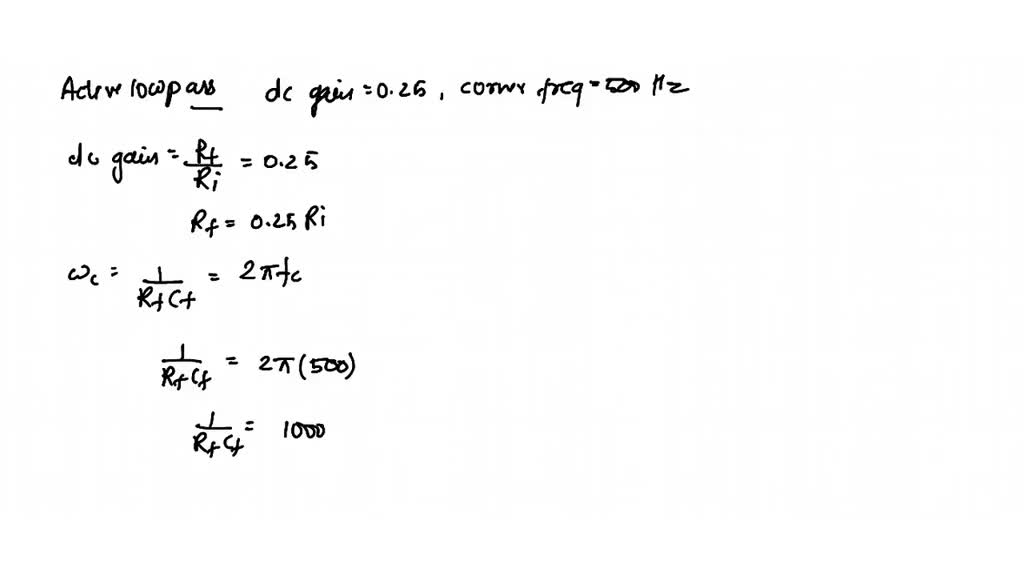 Active lowpass dc gain = 0.25, corner freq = 500 Hz
dc gain = Rf/Ri = 0.25
Rf = 0.25 Ri
ωc = 1/RfCf = 2πfc
1/RfCf = 2π(500)
1/RfCf = 1000